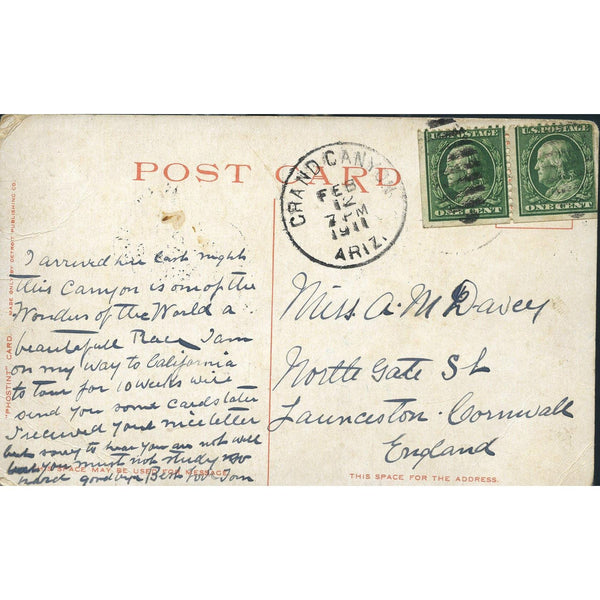 POST CARD
GRAND CANYON
FEB
12
7 PM
1911
ARIZ.
U.S. POSTAGE
ONE CENT
U.S. POSTAGE
ONE CENT
"PHOSTINT" CARD.
MADE ONLY BY DETROIT PUBLISHING CO.
I arrived here last night
this Canyon is one of the
Wonders of the World a
beautefull Place I am
on my way to California
to tour for 10 weeks will
send you some cards later
I received your nice letter
but sorry to hear you are not well
but you must not study so
hard goodbye Best love Tom
THIS SPACE MAY BE USED FOR MESSAGE.
Miss A. M Davey
North Gate St
Launceston. Cornwall
England
THIS SPACE FOR THE ADDRESS.